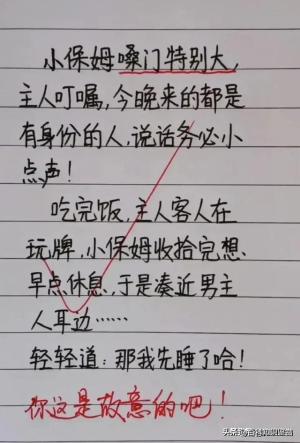 小保姆嗓门特别大,
主人叮嘱,今晚来的都是
有身份的人,说话务必小
点声!
吃完饭,主人客人在
玩牌,小保姆收拾完想
早点休息,于是凑近男主
人耳边……
轻轻道:那我先睡了哈!
你这是故意的吧!